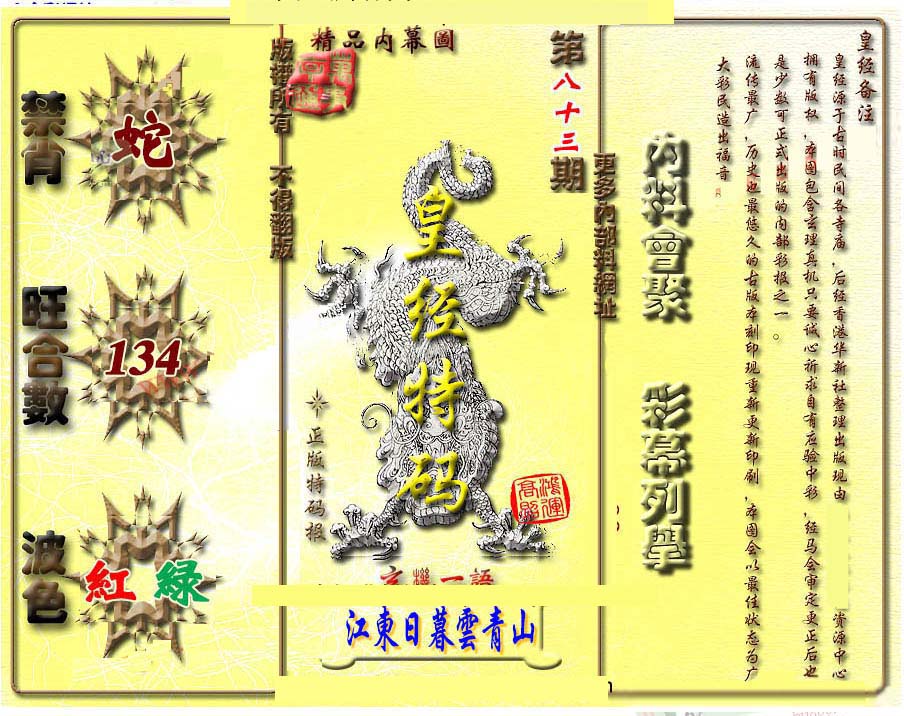 禁肖
蛇
旺合數
134
波色
紅 綠
精品內幕圖
版權所有 不得翻版
第八十三期
更多內部料網址
皇经特码
正版特码报
鴻運高照
玄機一語
江東日暮雲青山
內料會聚
彩幕列舉
皇经备注
皇经源于古时民间各寺庙，后经香港华新社整理出版现由 资源中心
拥有版权，本图包含玄理真机只要诚心祈求自有应验中彩，经马会审定更正后也
是少数可正式出版的内部彩报之一。
流传最广，历史也最悠久的古版本刻印现重新更新印刷，本图会以最佳状态为广
大彩民造出福音